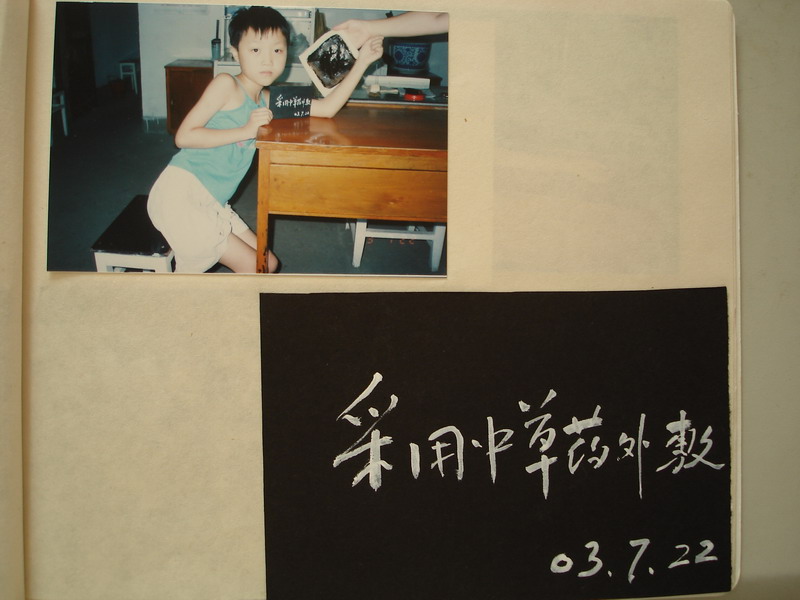 采用中草药外敷
03.7.22
采用中草药外敷
03.7.22